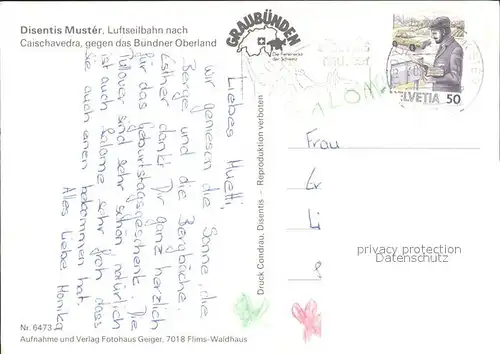 Disentis Mustér, Luftseilbahn nach
Caischavedra, gegen das Bündner Oberland
GRAUBÜNDEN
Die Ferienecke
der Schweiz
HELVETIA 50
SALOME
Liebes Muetti,
wir geniesen die Sonne, die
Berge und die Bergbäche.
Esther dankt Dir ganz herzlich
für das Geburtstagsgeschenk. Die
Pullover sind sehr schön natürlich
ist auch Salome sehr froh dass
sie auch einen bekommen hat.
Alles Liebe Monika
Druck Condrau, Disentis – Reproduktion verboten
Frau
Er
Li
privacy protection
Datenschutz
Nr. 6473
Aufnahme und Verlag Fotohaus Geiger, 7018 Flims-Waldhaus